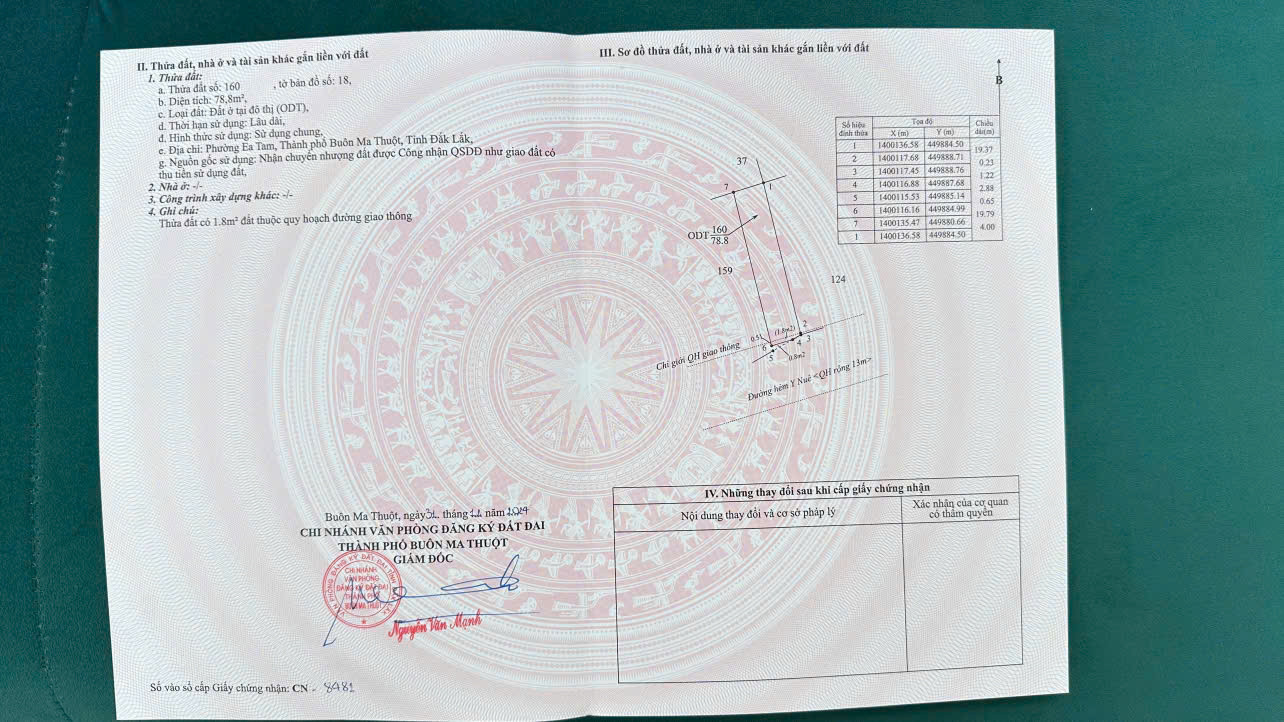 II. Thửa đất, nhà ở và tài sản khác gắn liền với đất
1. Thửa đất:
a. Thửa đất số: 160 , tờ bản đồ số: 18,
b. Diện tích: 78,8m²,
c. Loại đất: Đất ở tại đô thị (ODT),
d. Thời hạn sử dụng: Lâu dài,
đ. Hình thức sử dụng: Sử dụng chung,
e. Địa chỉ: Phường Ea Tam, Thành phố Buôn Ma Thuột, Tỉnh Đắk Lắk,
g. Nguồn gốc sử dụng: Nhận chuyển nhượng đất được Công nhận QSDĐ như giao đất có
thu tiền sử dụng đất,
2. Nhà ở: -/-
3. Công trình xây dựng khác: -/-
4. Ghi chú:
Thửa đất có 1.8m² đất thuộc quy hoạch đường giao thông
Buôn Ma Thuột, ngày tháng năm 2024
CHI NHÁNH VĂN PHÒNG ĐĂNG KÝ ĐẤT ĐAI
THÀNH PHỐ BUÔN MA THUỘT
GIÁM ĐỐC
CHI NHÁNH
VĂN PHÒNG
ĐĂNG KÝ ĐẤT ĐAI
THÀNH PHỐ
BUÔN MA THUỘT
Nguyễn Văn Mạnh
Số vào sổ cấp Giấy chứng nhận: CN - 8481
III. Sơ đồ thửa đất, nhà ở và tài sản khác gắn liền với đất
B
Số hiệu đỉnh thửa Tọa độ Chiều dài(m)
X (m) Y (m)
1 1400136.58 449884.50
19.37
2 1400117.68 449888.71
0.23
3 1400117.45 449888.76
1.22
4 1400116.88 449887.68
2.88
5 1400115.53 449885.14
0.65
6 1400116.16 449884.99
19.79
7 1400135.47 449880.66
4.00
1 1400136.58 449884.50
37
7
1
ODT 160
78.8
159
124
0.51
(1.8m2)
2
6
4
3
5
0.8m2
Chỉ giới QH giao thông
Đường hẻm Y Nuê <QH rộng 13m>
IV. Những thay đổi sau khi cấp giấy chứng nhận
Nội dung thay đổi và cơ sở pháp lý
Xác nhận của cơ quan
có thẩm quyền